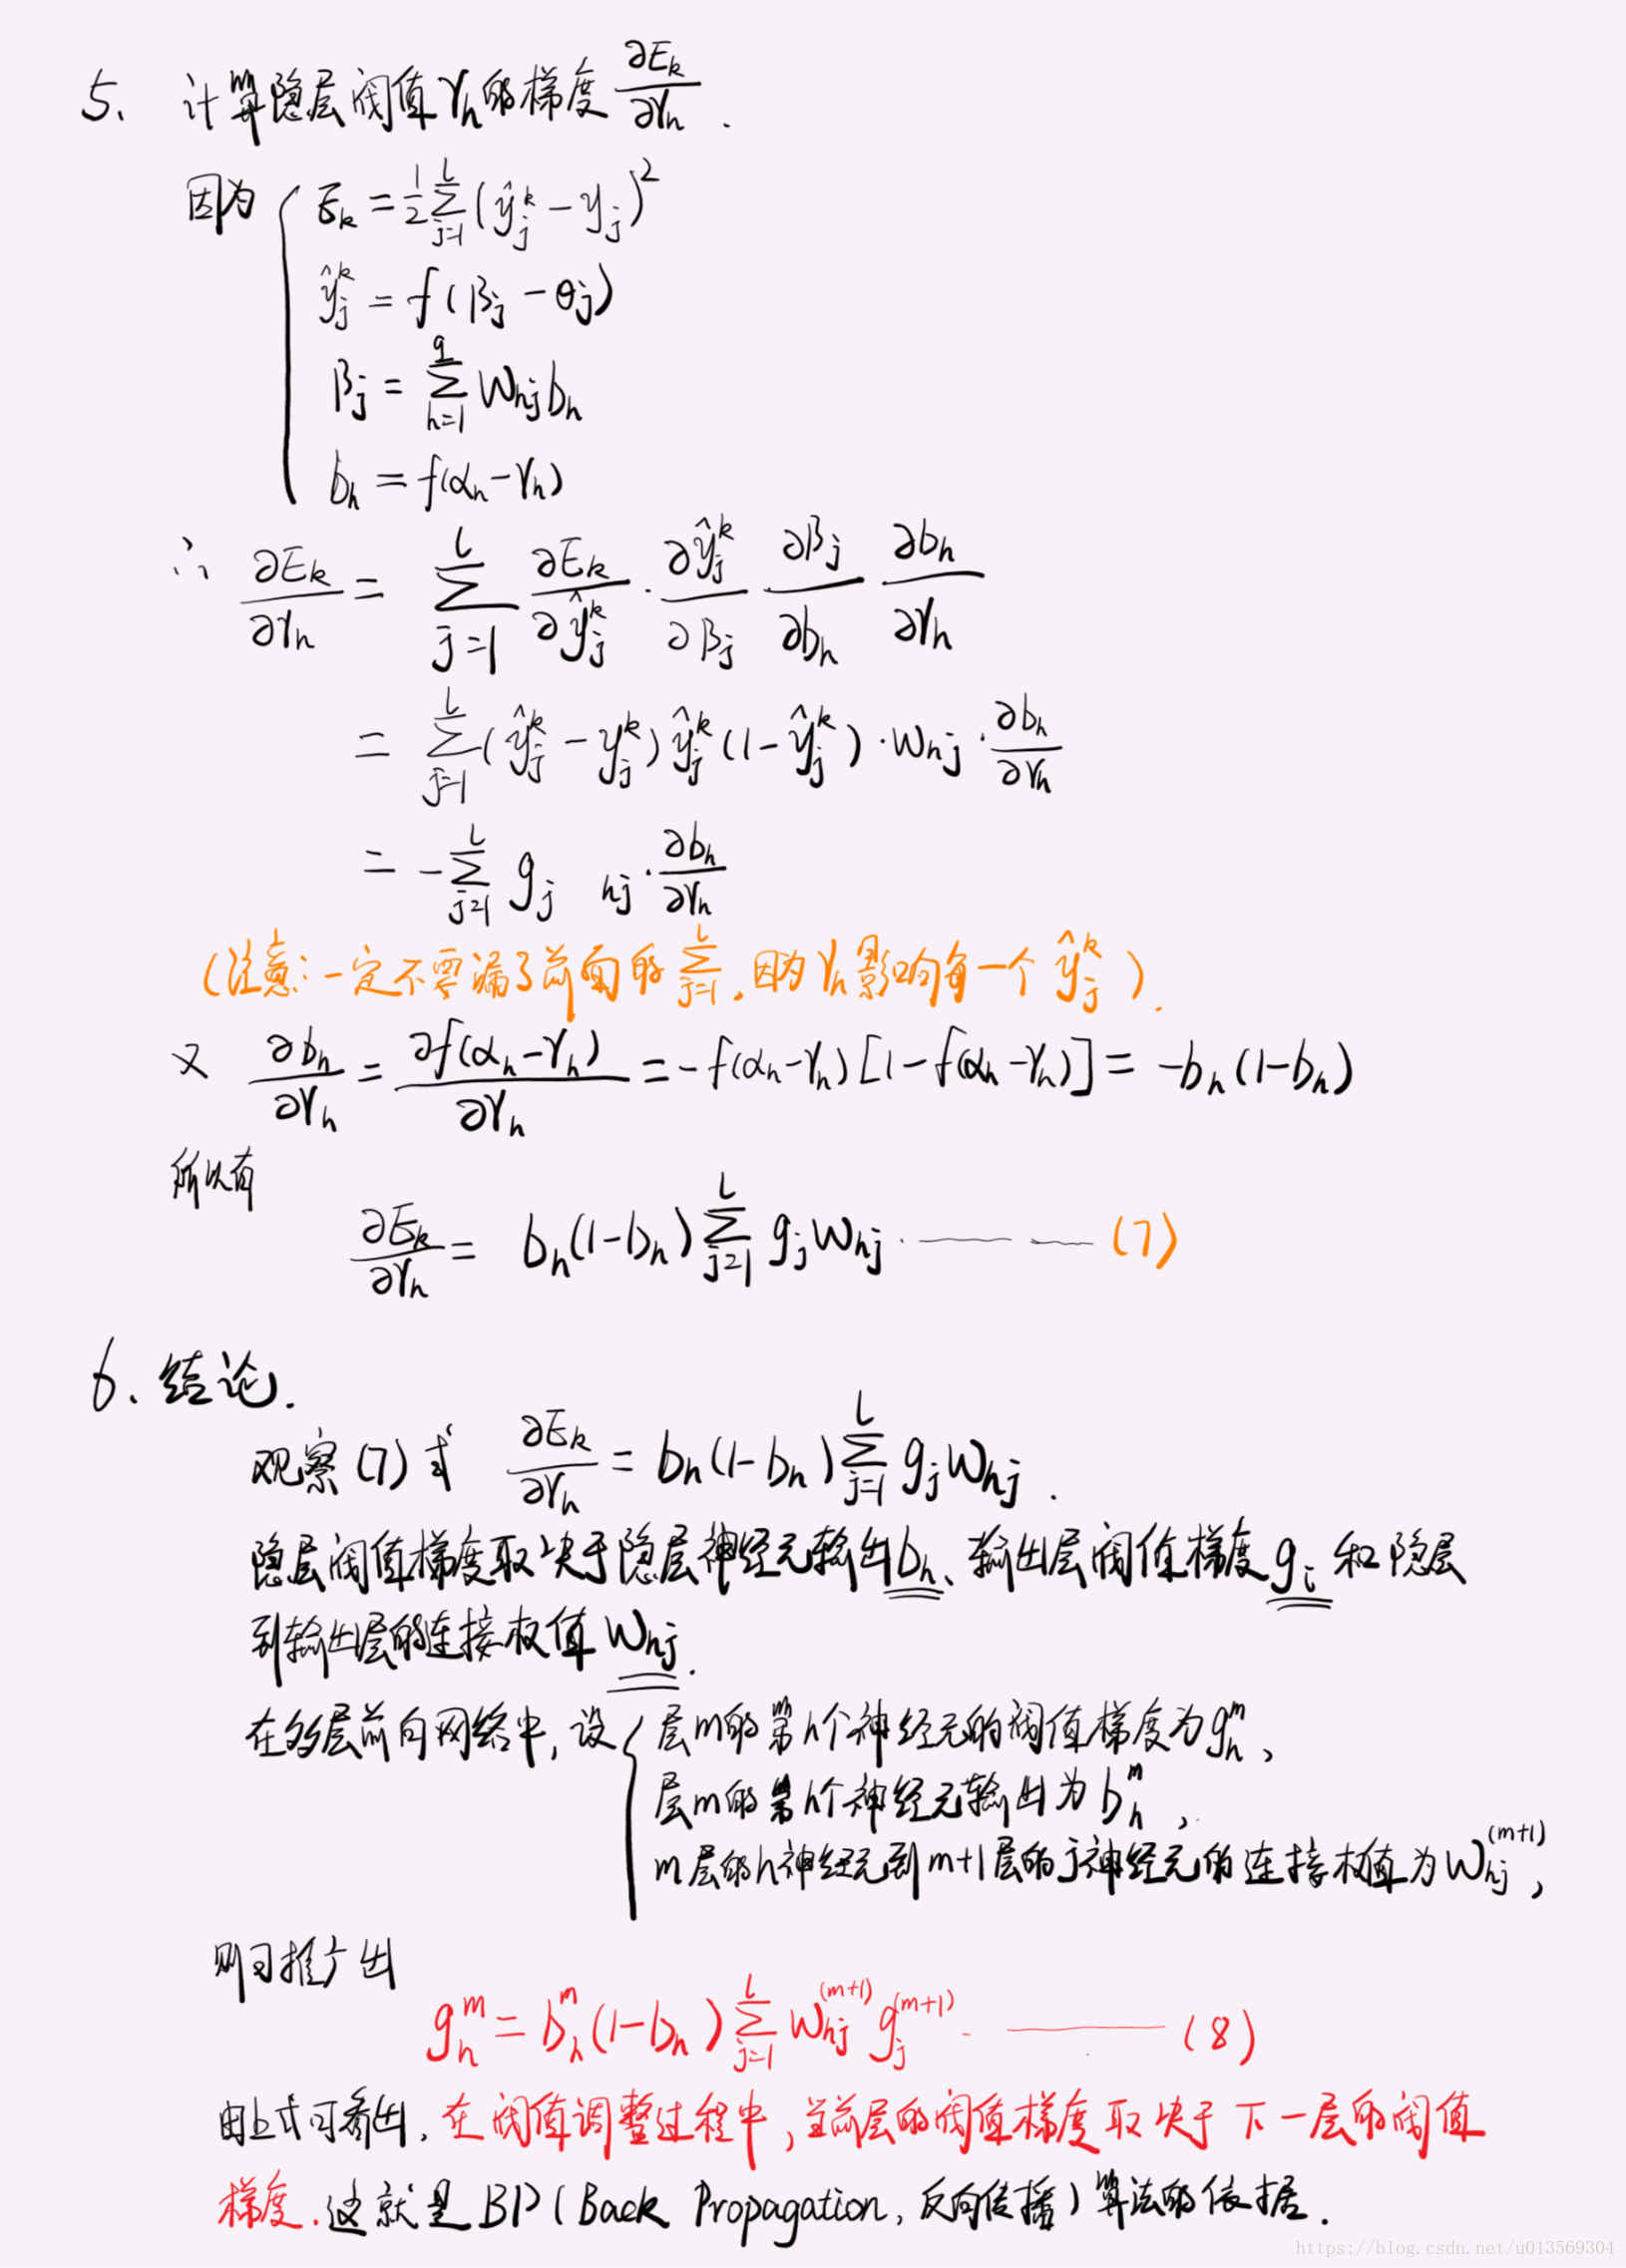 5、计算隐层阀值γh的梯度 ∂Ek/∂γh .
因为 { Ek = 1/2 Σ_{j=1}^{L} (ŷ_j^k − y_j)²
ŷ_j^k = f(βj − θj)
βj = Σ_{h=1}^{q} Whj bh
bh = f(αh − γh)
∴ ∂Ek/∂γh = Σ_{j=1}^{L} ∂Ek/∂ŷ_j^k · ∂ŷ_j^k/∂βj ∂βj/∂bh ∂bh/∂γh
= Σ_{j=1}^{L} (ŷ_j^k − y_j^k) ŷ_j^k (1 − ŷ_j^k) · Whj · ∂bh/∂γh
= − Σ_{j=1}^{L} gj hj · ∂bh/∂γh
(注意:一定不要漏了前面的 Σ_{j=1}^{L} ,因为γh影响每一个 ŷ_j^k ).
又 ∂bh/∂γh = ∂f(αh−γh)/∂γh = −f(αh−γh)[1−f(αh−γh)] = −bh(1−bh)
所以有
∂Ek/∂γh = bh(1−bh) Σ_{j=1}^{L} gj Whj ········ (7)
6、结论.
观察(7)式 ∂Ek/∂γh = bh(1−bh) Σ_{j=1}^{L} gj Whj .
隐层阀值梯度取决于隐层神经元输出bh、输出层阀值梯度gj和隐层
到输出层的连接权值Whj.
在多层前向网络中,设 { 层m的第h个神经元的阀值梯度为g_h^m,
层m的第h个神经元输出为b_h^m,
m层的h神经元到m+1层的j神经元的连接权值为W_hj^(m+1),
则可推广出
g_h^m = b_h^m (1−bh) Σ_{j=1}^{L} W_hj^(m+1) g_j^(m+1) ········ (8)
由上式可看出,在阀值调整过程中,当前层的阀值梯度取决于下一层的阀值
梯度.这就是BP(Back Propagation,反向传播)算法的依据.
https://blog.csdn.net/u013569304